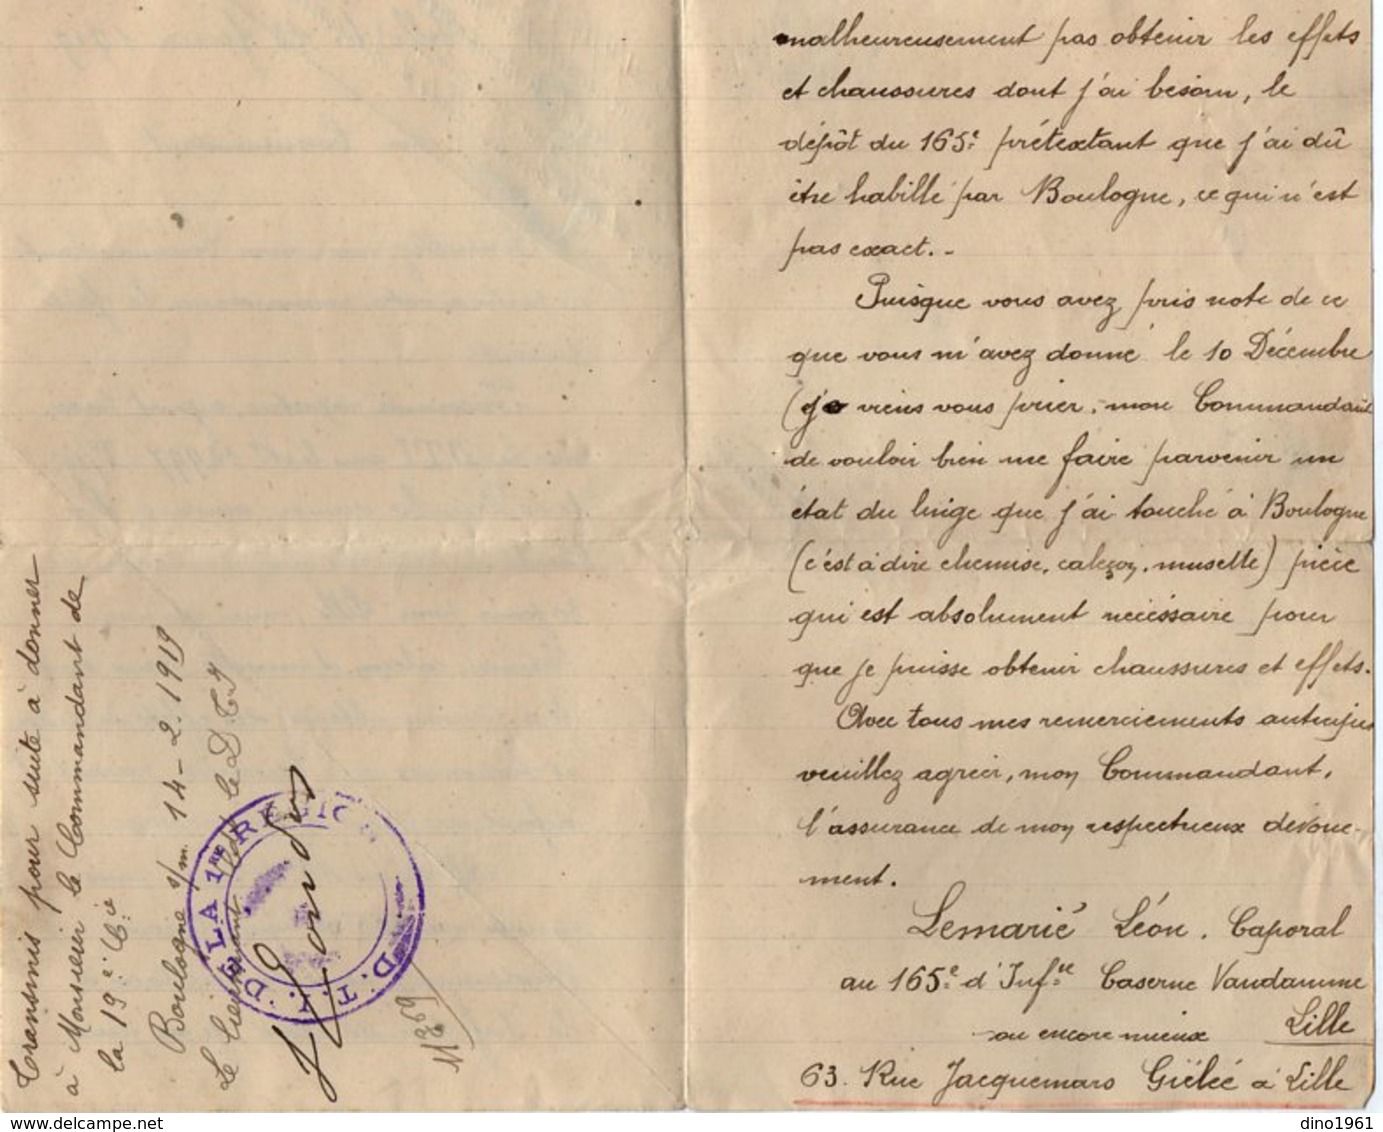 malheureusement pas obtenir les effets
et chaussures dont j'ai besoin, le
dépôt du 165e prétextant que j'ai dû
être habillé par Boulogne, ce qui n'est
pas exact.-
Puisque vous avez pris note de ce
que vous m'avez donné le 10 Décembre
(je viens vous prier, mon Commandant
de vouloir bien me faire parvenir un
état du linge que j'ai touché à Boulogne
(c'est à dire chemise, caleçon, musette) pièce
qui est absolument nécéssaire pour
que je puisse obtenir chaussures et effets.
Avec tous mes remerciements anticipés
veuillez agréer, mon Commandant,
l'assurance de mon respectueux dévoue-
ment.
Lemarié Léon. Caporal
au 165e d'Infie Caserne Vandamme
ou encore mieux Lille
63. Rue Jacquemars Giélée à Lille
Transmis pour suite à donner
à Monsieur le Commandant de
la 19e Cie
Boulogne s/m. 14-2.1919
Le Lieutenant le D T I
DE LA 1RE REGION
D.T.
11369
dino1961